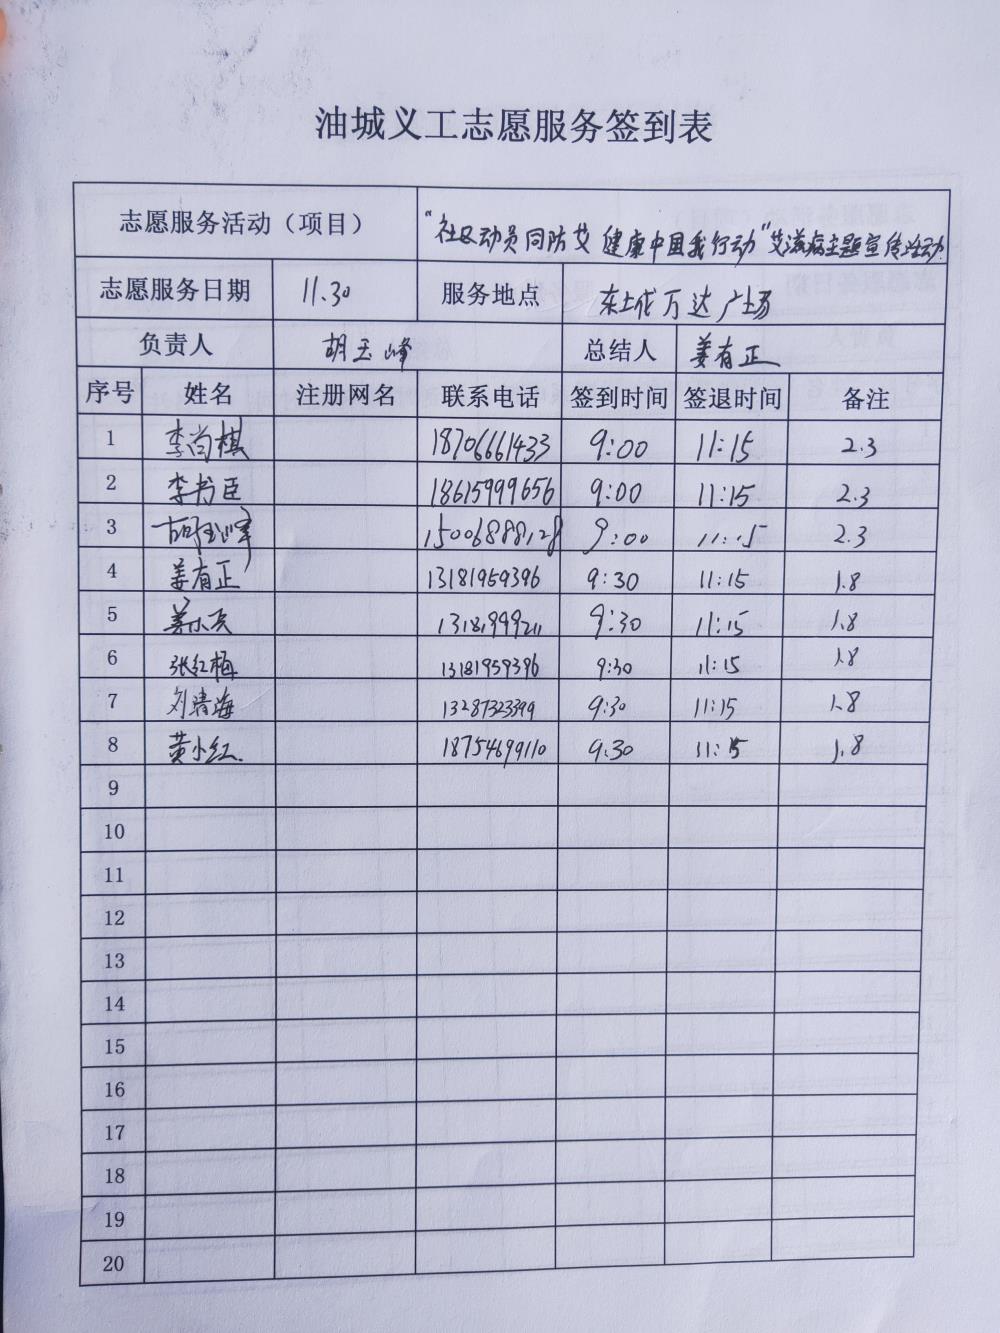 油城义工志愿服务签到表
志愿服务活动（项目） “社区动员同防艾 健康中国我行动”艾滋病主题宣传活动
志愿服务日期 11.30 服务地点 东城万达广场
负责人 胡玉峰 总结人 姜有正
序号 姓名 注册网名 联系电话 签到时间 签退时间 备注
1 李尚棋 18706661433 9:00 11:15 2.3
2 李书臣 18615999656 9:00 11:15 2.3
3 胡玉峰 15006888128 9:00 11:15 2.3
4 姜有正 13181959396 9:30 11:15 1.8
5 9:30 11:15 1.8
6 张红梅 13181959396 9:30 11:15 1.8
7 刘清海 13287323399 9:30 11:15 1.8
8 黄小红 18754699110 9:30 11:15 1.8
9
10
11
12
13
14
15
16
17
18
19
20